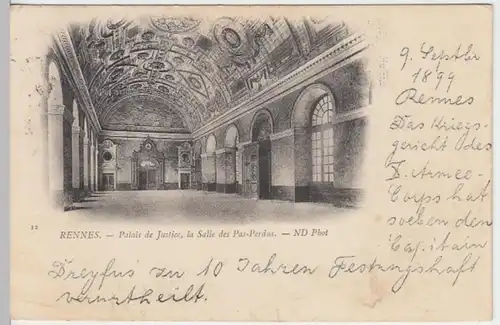 9. Septbr
1899
Rennes
Das Kriegs-
gericht des
X. Armee-
Corps hat
soeben den
Capitain
12
RENNES. — Palais de Justice, la Salle des Pas-Perdus. — ND Phot
Dreyfus zu 10 Jahren Festungshaft
verurtheilt.